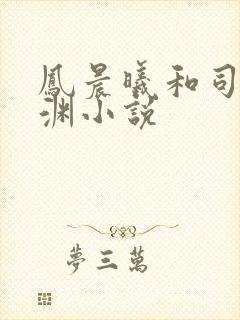 鳳晨曦和司
淵小説
夢三萬